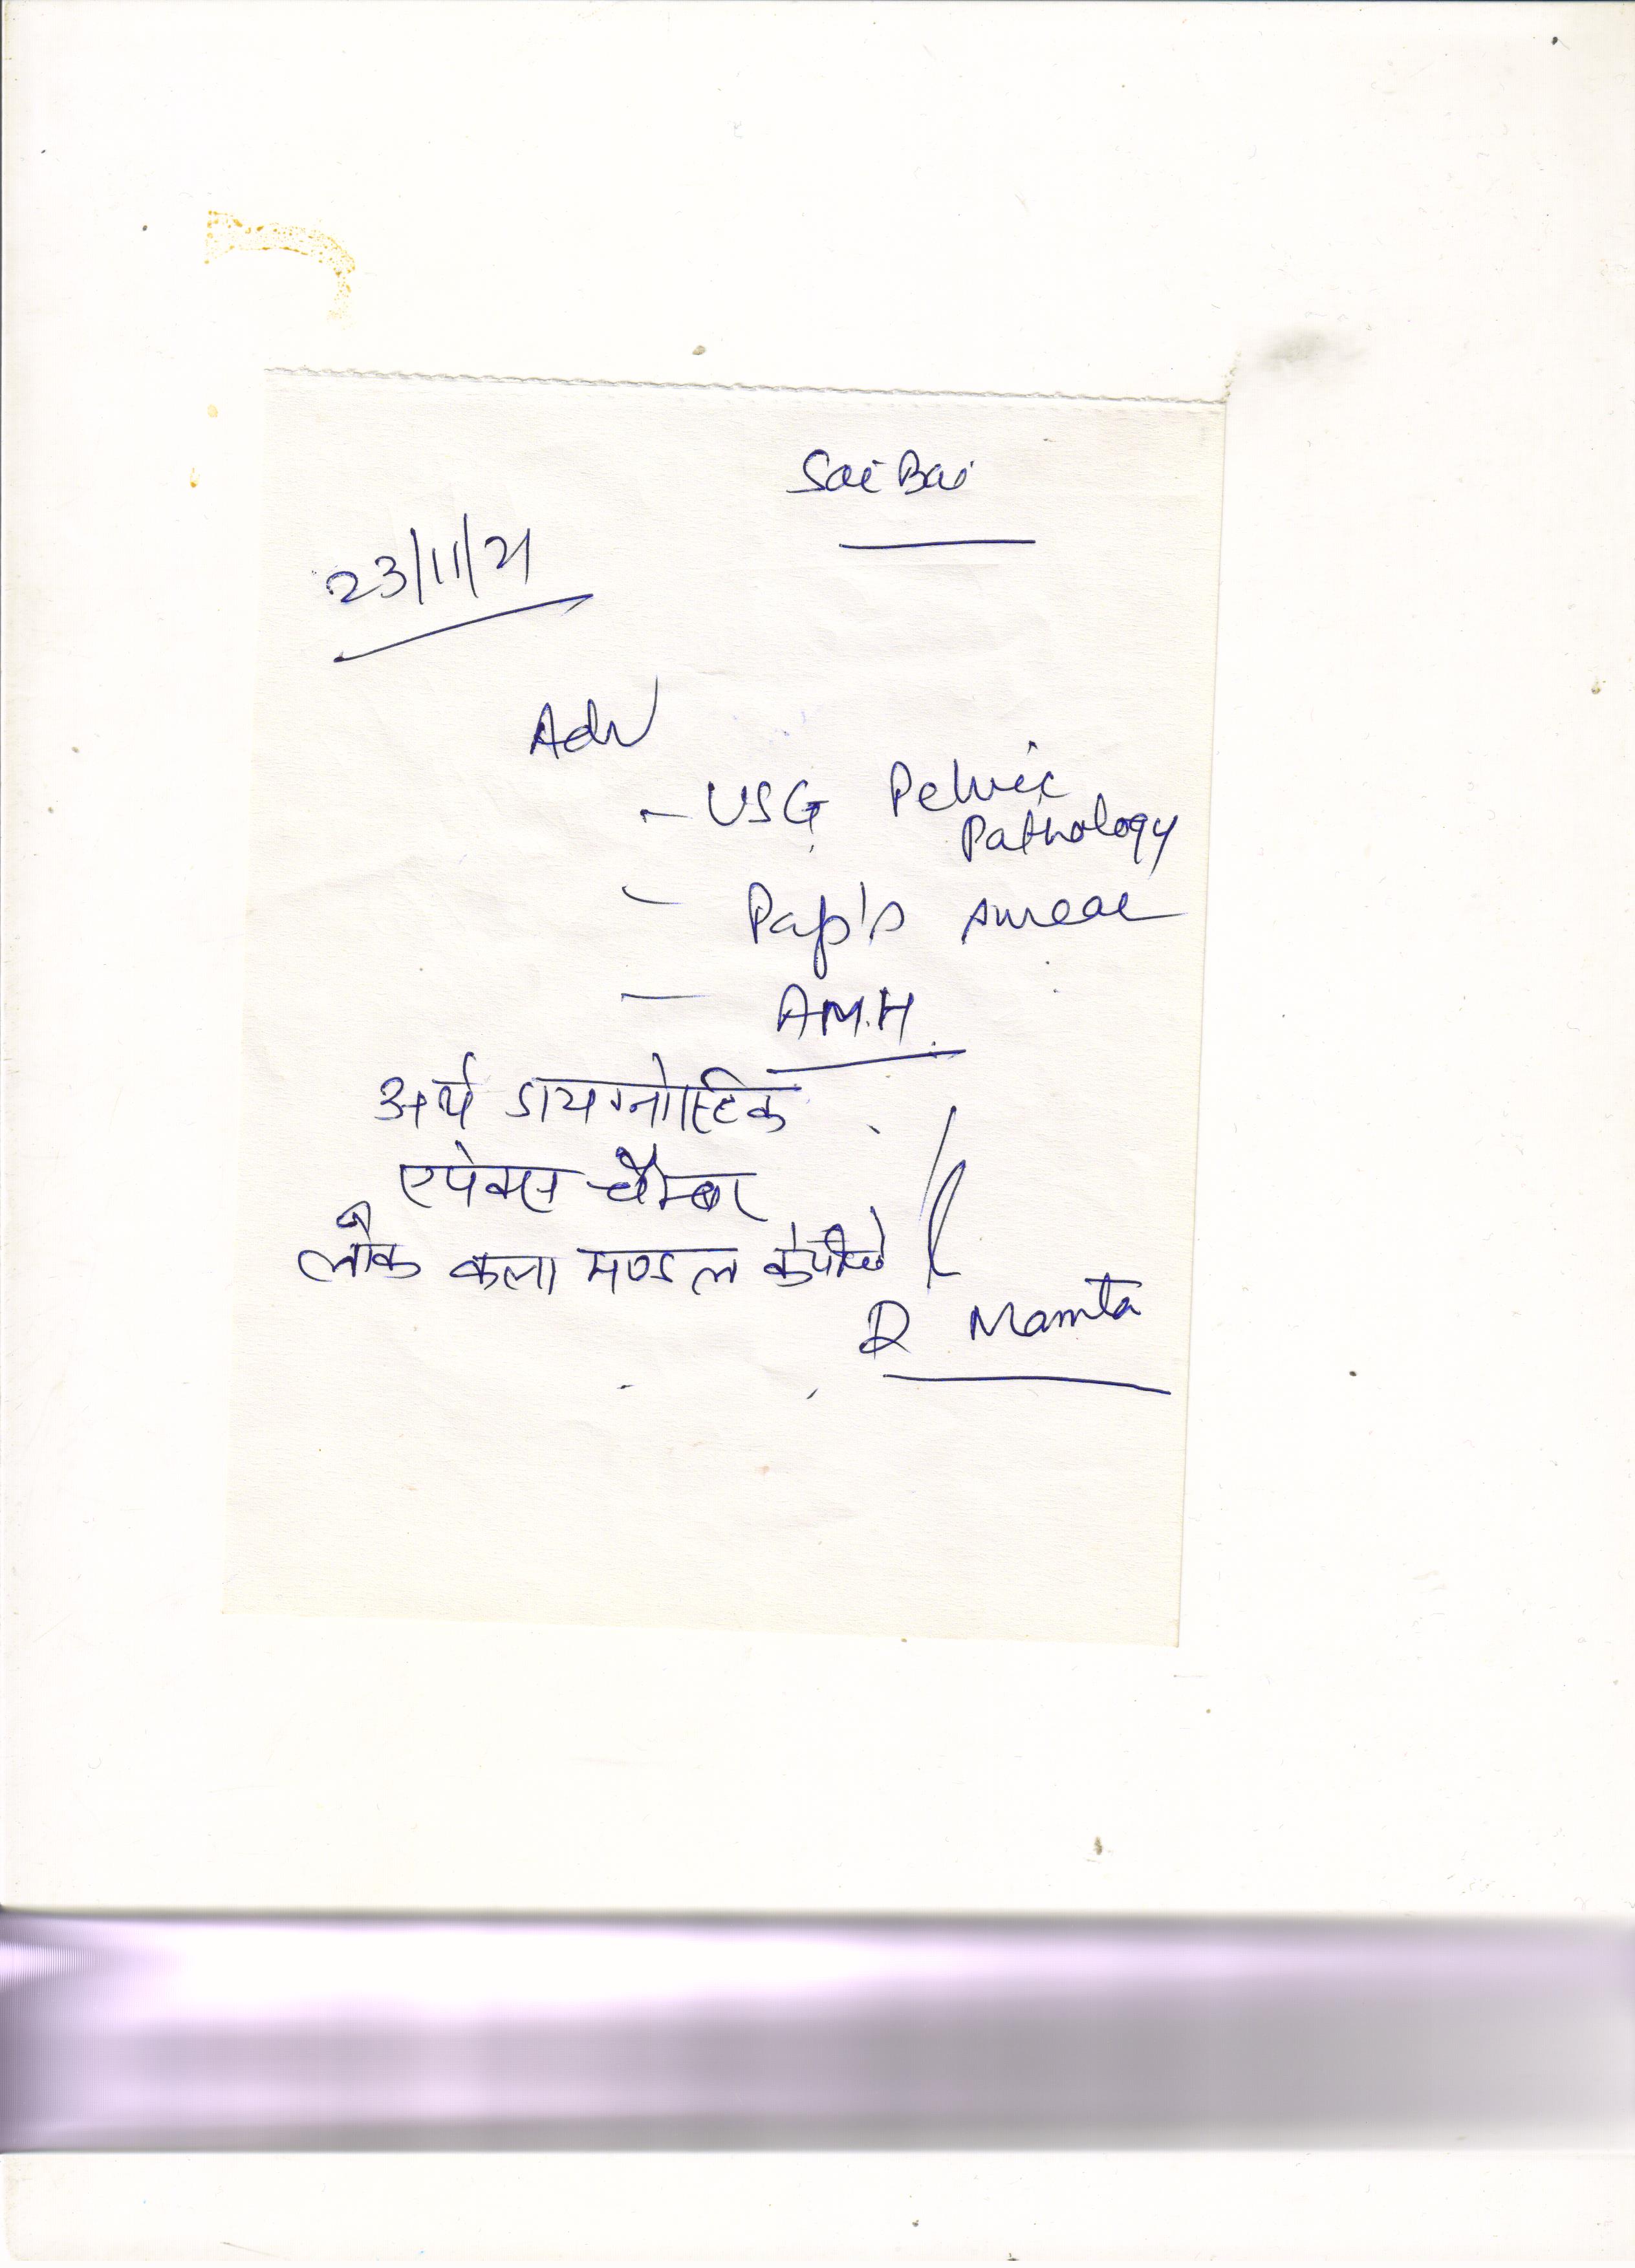 Sai Bai
23/11/21
Adv
- USG Pelvic
Pathology
- Pap's smear
- AM.H.
अर्थ डायग्नोस्टिक
एपेक्स चैम्बर
लोक कला मण्डल के पीछे
D Mamta